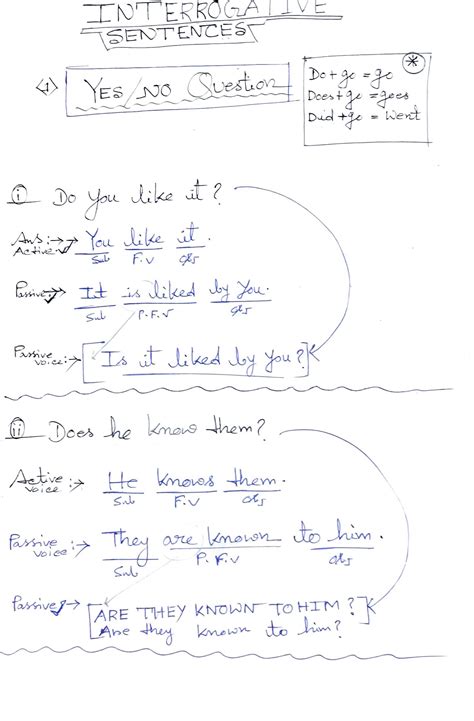 INTERROGATIVE
SENTENCES
<1> YES/NO Question
*
Do + go = go
Does + go = goes
Did + go = went
(i) Do you like it?
Ans :→
Active → You like it.
Sub F.V Obj
Passive → It is liked by you.
Sub P.F.V Obj
Passive voice :→ [Is it liked by you?]
(ii) Does he know them?
Active voice :→ He knows them.
Sub F.V Obj
Passive voice :→ They are known to him.
Sub P.F.V Obj
Passive → [ARE THEY KNOWN TO HIM?]
Are they known to him?